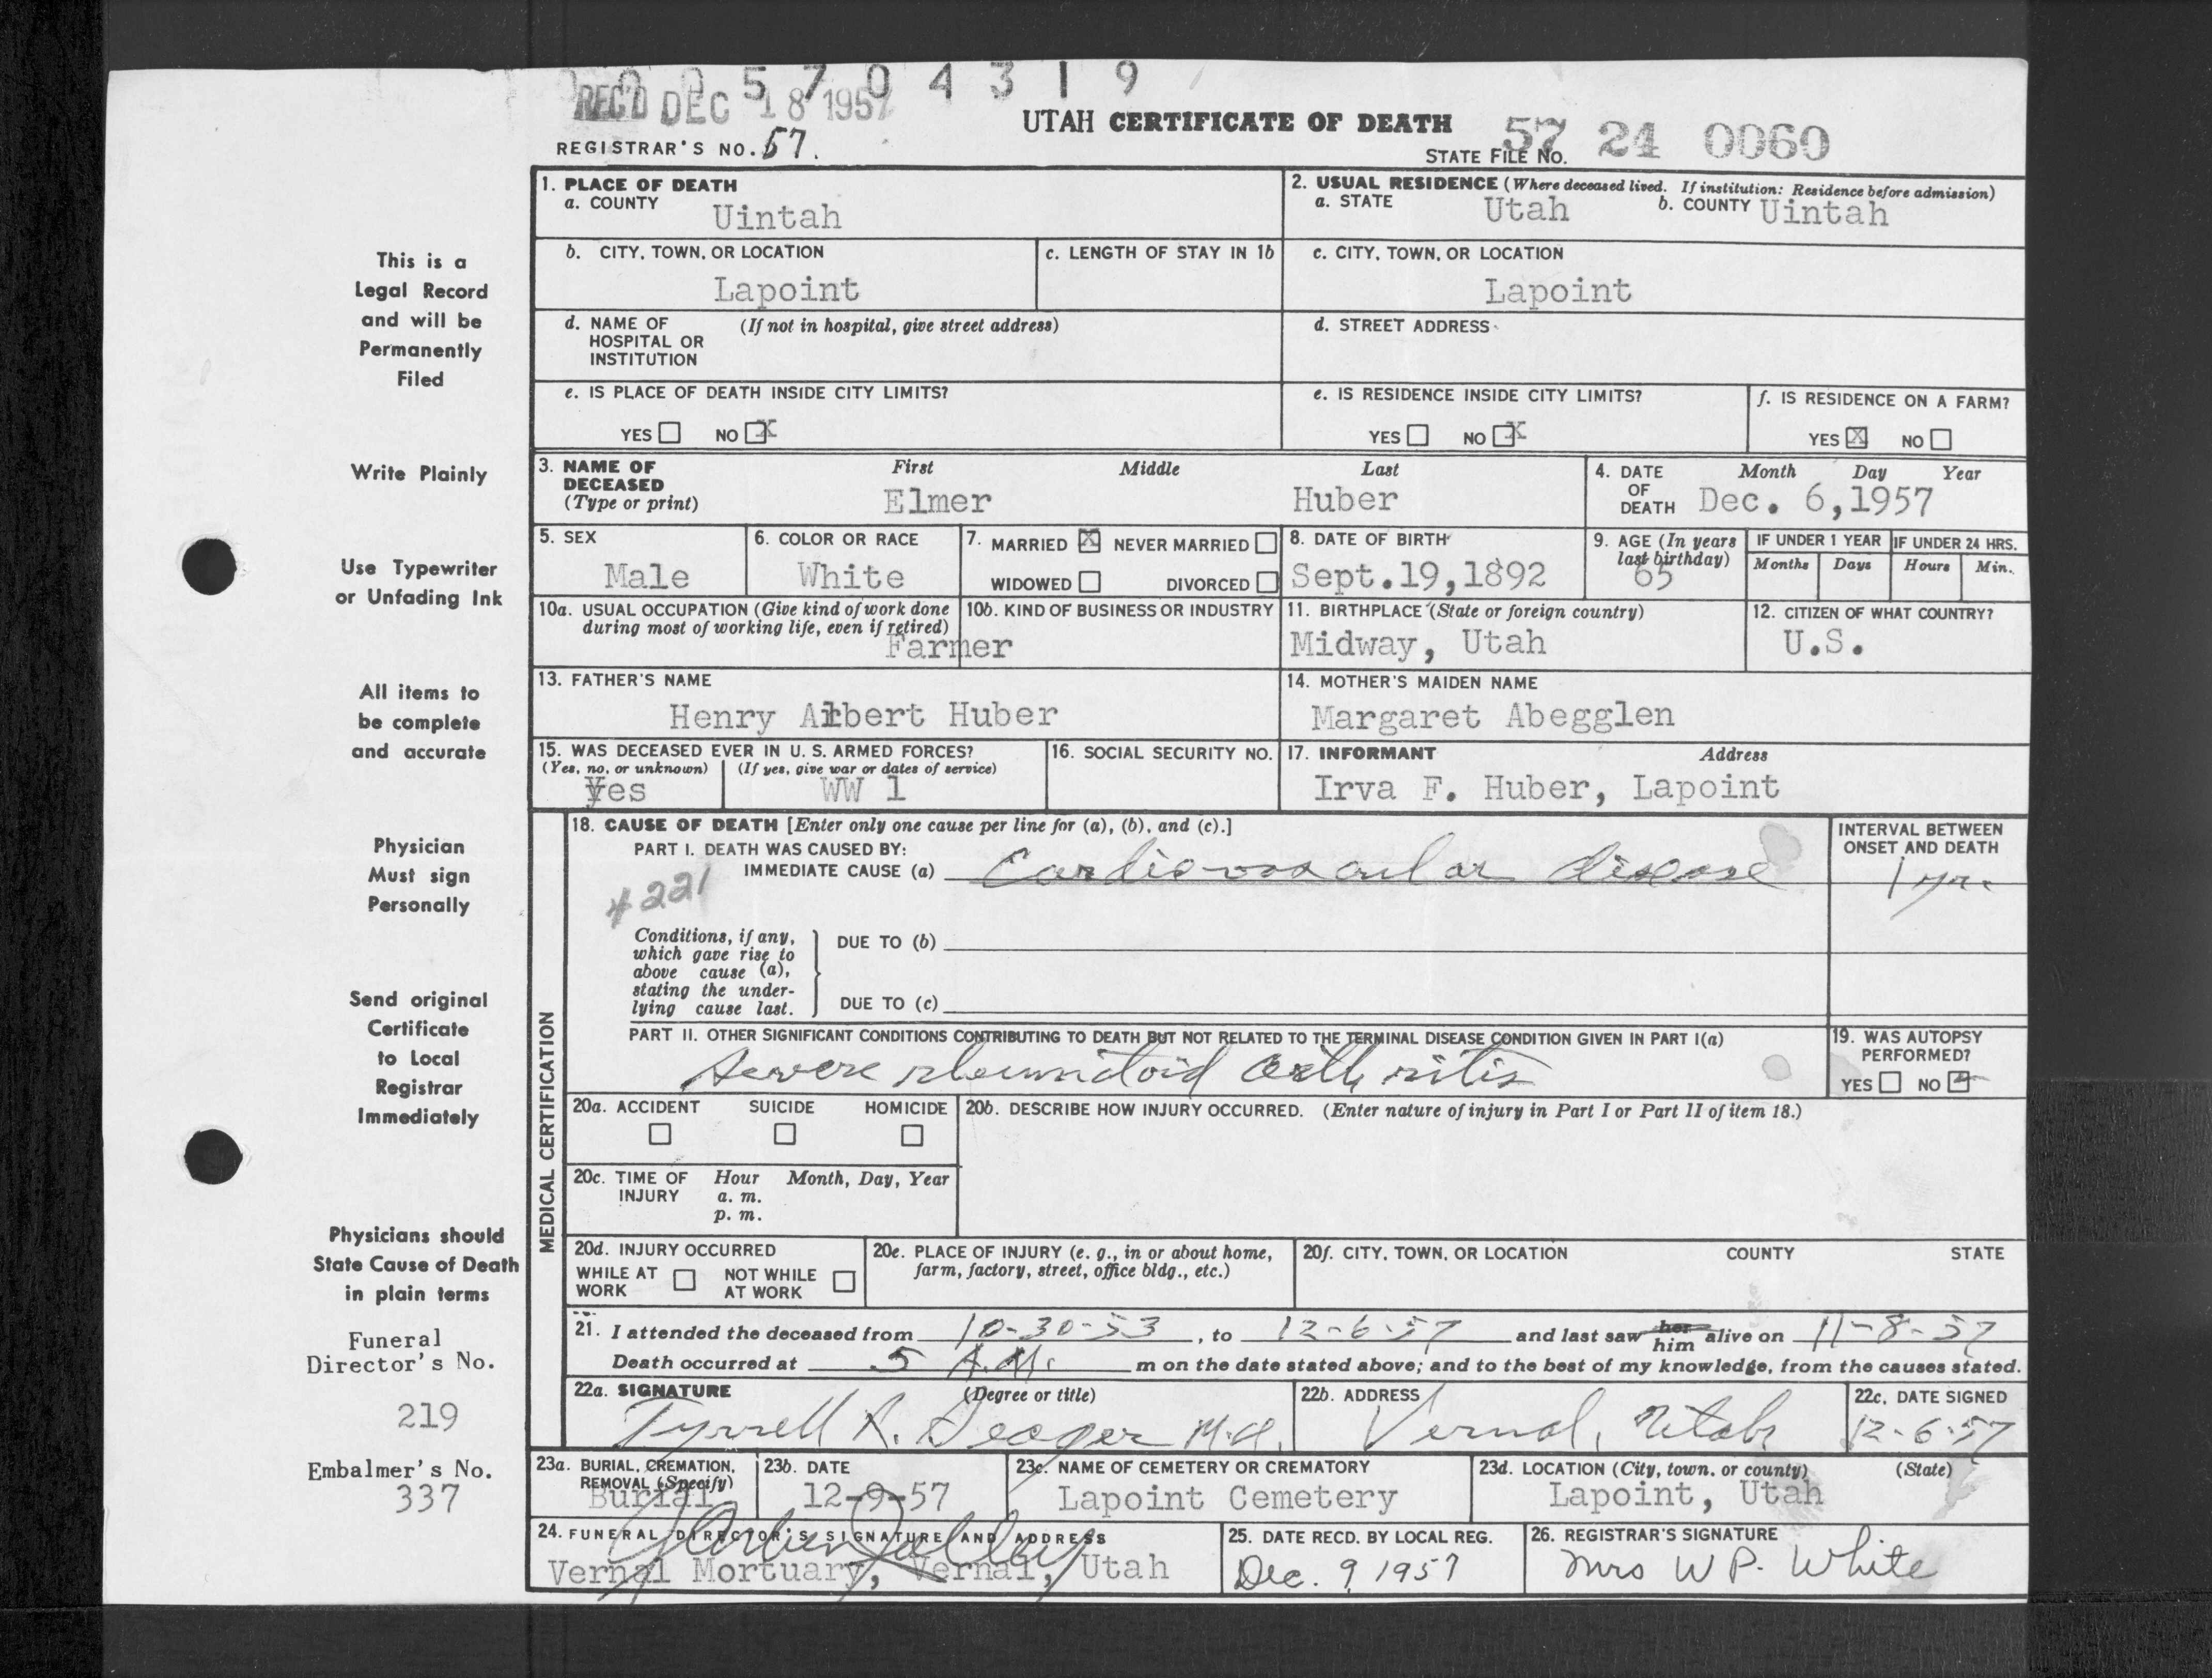 0 0 0 5 7 0 4 3 1 9
REC'D DEC 18 1957
UTAH CERTIFICATE OF DEATH
REGISTRAR'S NO. 57.
STATE FILE NO. 57 24 0060
1. PLACE OF DEATH
a. COUNTY Uintah
2. USUAL RESIDENCE (Where deceased lived. If institution: Residence before admission)
a. STATE Utah b. COUNTY Uintah
b. CITY, TOWN, OR LOCATION
Lapoint
c. LENGTH OF STAY IN 1b
c. CITY, TOWN, OR LOCATION
Lapoint
d. NAME OF (If not in hospital, give street address)
HOSPITAL OR
INSTITUTION
d. STREET ADDRESS
e. IS PLACE OF DEATH INSIDE CITY LIMITS?
YES NO X
e. IS RESIDENCE INSIDE CITY LIMITS?
YES NO X
f. IS RESIDENCE ON A FARM?
YES X NO
3. NAME OF DECEASED (Type or print)
First Middle Last
Elmer Huber
4. DATE OF DEATH Month Day Year
Dec. 6,1957
5. SEX
Male
6. COLOR OR RACE
White
7. MARRIED X NEVER MARRIED
WIDOWED DIVORCED
8. DATE OF BIRTH
Sept.19,1892
9. AGE (In years last birthday)
65
IF UNDER 1 YEAR IF UNDER 24 HRS.
Months Days Hours Min.
10a. USUAL OCCUPATION (Give kind of work done
during most of working life, even if retired)
Farmer
10b. KIND OF BUSINESS OR INDUSTRY
11. BIRTHPLACE (State or foreign country)
Midway, Utah
12. CITIZEN OF WHAT COUNTRY?
U.S.
13. FATHER'S NAME
Henry Albert Huber
14. MOTHER'S MAIDEN NAME
Margaret Abegglen
15. WAS DECEASED EVER IN U. S. ARMED FORCES?
(Yes, no, or unknown) (If yes, give war or dates of service)
Yes WW 1
16. SOCIAL SECURITY NO.
17. INFORMANT Address
Irva F. Huber, Lapoint
MEDICAL CERTIFICATION
18. CAUSE OF DEATH [Enter only one cause per line for (a), (b), and (c).]
PART I. DEATH WAS CAUSED BY:
IMMEDIATE CAUSE (a) Cardiovascular disease
4221
INTERVAL BETWEEN
ONSET AND DEATH
1 yr.
Conditions, if any,
which gave rise to
above cause (a),
stating the under-
lying cause last.
DUE TO (b)
DUE TO (c)
PART II. OTHER SIGNIFICANT CONDITIONS CONTRIBUTING TO DEATH BUT NOT RELATED TO THE TERMINAL DISEASE CONDITION GIVEN IN PART I(a)
Severe rheumatoid arthritis
19. WAS AUTOPSY
PERFORMED?
YES NO
20a. ACCIDENT SUICIDE HOMICIDE
20b. DESCRIBE HOW INJURY OCCURRED. (Enter nature of injury in Part I or Part II of item 18.)
20c. TIME OF INJURY Hour Month, Day, Year
a. m.
p. m.
20d. INJURY OCCURRED
WHILE AT WORK NOT WHILE AT WORK
20e. PLACE OF INJURY (e. g., in or about home,
farm, factory, street, office bldg., etc.)
20f. CITY, TOWN, OR LOCATION COUNTY STATE
21. I attended the deceased from 10-30-53, to 12-6-57 and last saw her him alive on 11-8-57
Death occurred at 5 A.M. m on the date stated above; and to the best of my knowledge, from the causes stated.
22a. SIGNATURE (Degree or title)
Tyrrell R. Seager M.D.
22b. ADDRESS
Vernal, Utah
22c. DATE SIGNED
12-6-57
23a. BURIAL, CREMATION,
REMOVAL (Specify)
Burial
23b. DATE
12-9-57
23c. NAME OF CEMETERY OR CREMATORY
Lapoint Cemetery
23d. LOCATION (City, town, or county) (State)
Lapoint, Utah
24. FUNERAL DIRECTOR'S SIGNATURE AND ADDRESS
Vernal Mortuary, Vernal, Utah
25. DATE RECD. BY LOCAL REG.
Dec. 9 1957
26. REGISTRAR'S SIGNATURE
Mrs W P. White
This is a
Legal Record
and will be
Permanently
Filed
Write Plainly
Use Typewriter
or Unfading Ink
All items to
be complete
and accurate
Physician
Must sign
Personally
Send original
Certificate
to Local
Registrar
Immediately
Physicians should
State Cause of Death
in plain terms
Funeral
Director's No.
219
Embalmer's No.
337